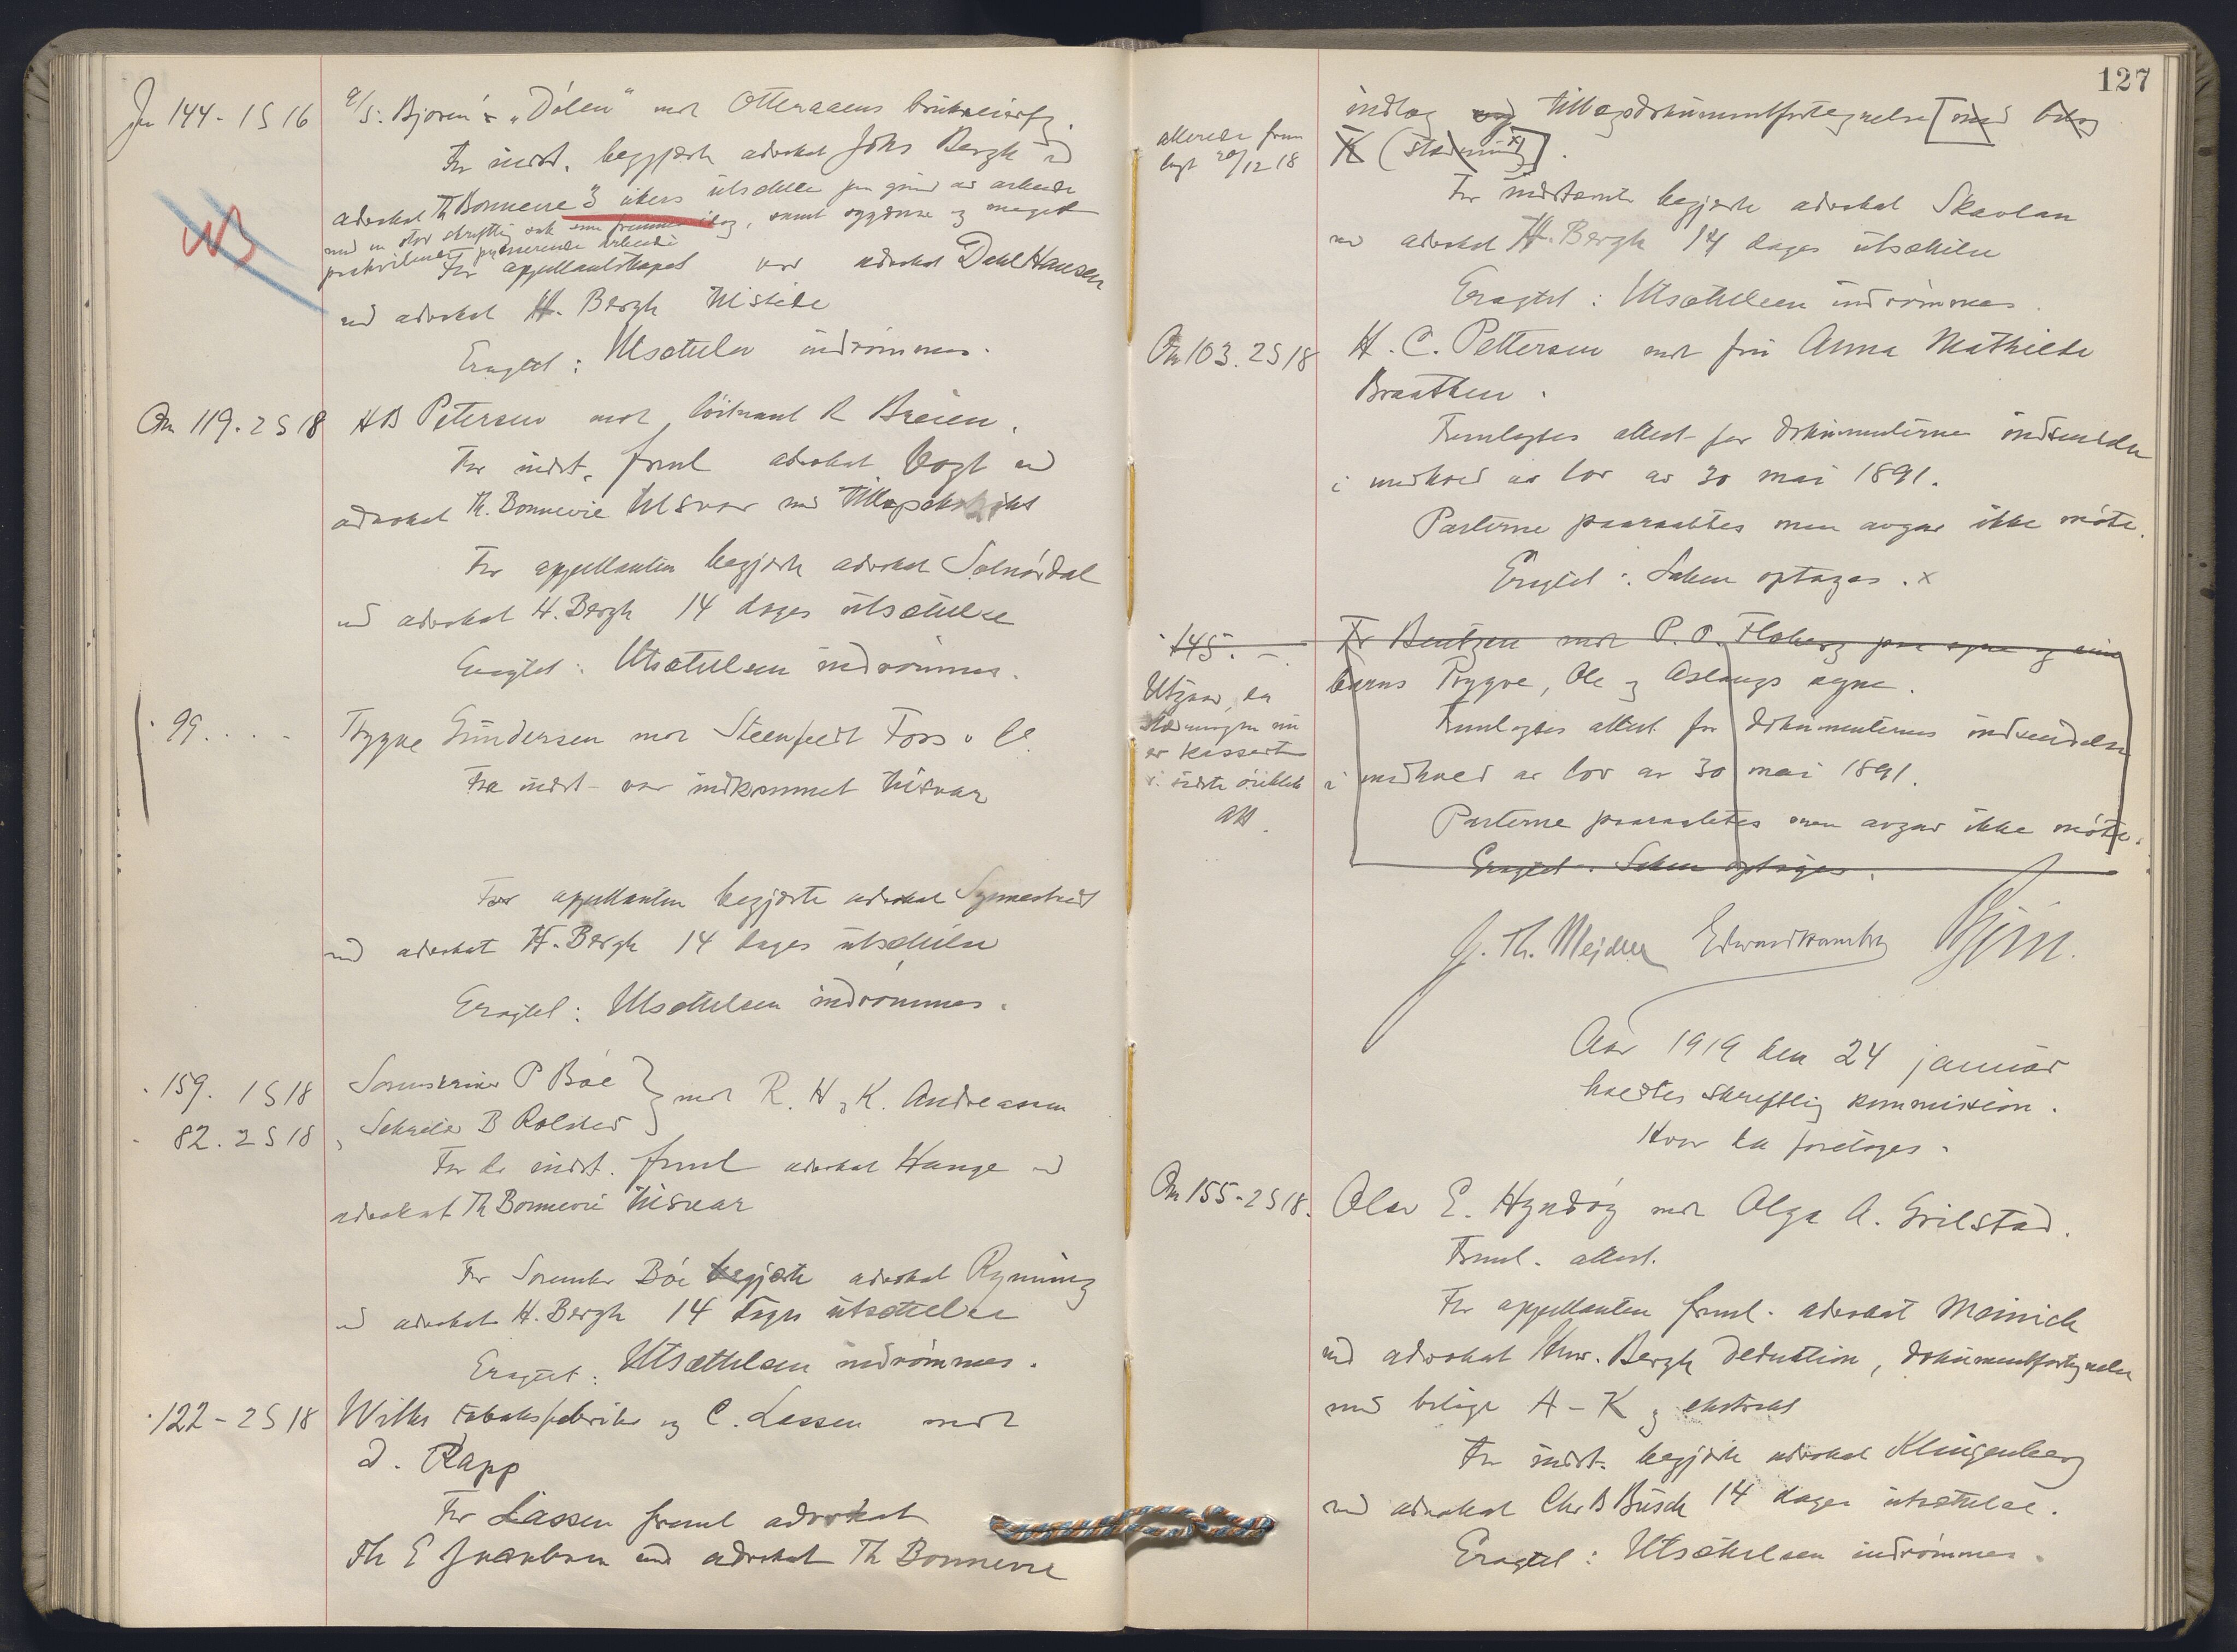 Jn 144 - 1 S 16
A/S. Bjoren's „Dölen" mot Otteraaens brukseierf.
For indst. begjærte advokat Johs Bergh ved
advokat Th Bonnevie 3 ukers utsættelse paa grund av arbeide
med en stor skriftlig sak som fremmes idag, samt sygdom og meget
presserende arbeide
For appellantskapet var advokat Dahl Hansen
ved advokat H. Bergh tilstede
Eragtet: Utsættelsen indrömmes.
NB
On 119. 2 S 18
HB Petersen mot löitnant R Breien.
For indst. freml advokat Vogt ved
advokat Th. Bonnevie tilsvar med
For appellanten begjærte advokat Solnördal
ved advokat H. Bergh 14 dages utsættelse
Eragtet: Utsættelsen indrömmes.
99. . . -
Trygve Gundersen mot Steenfeldt Foss & Co.
Fra indst. var indkommet tilsvar
For appellanten begjærte advokat Synnestvedt
ved advokat H. Bergh 14 dages utsættelse
Eragtet: Utsættelsen indrömmes.
159. 1 S 18
82. 2 S 18
Sorenskriver P Böe
B Rolsted
mot R. H. & K. Andreassen
For de indst. freml advokat Wange ved
advokat Th Bonnevie tilsvar
For Sorenskr Böe begjærte advokat Ryning
ved advokat H. Bergh 14 dages utsættelse
Eragtet: Utsættelsen indrömmes.
122 - 2 S 18
Wilhs tobaksfabrikk og C. Lassen mot
D. Rapp
For Lassen freml advokat
Th E ved advokat Th Bonnevie
127
allerede frem
lagt 20/12 18
indlæg og tillægsdokumentfortegnelse [med bilag
K (stævning x)].
For indstevnte begjærte advokat Skavlan
ved advokat H. Bergh 14 dages utsættelse
Eragtet: Utsættelsen indrömmes.
On 103. 2 S 18
H. C. Pettersen mot fru Anna Mathilde
Braathen.
Fremlagdes attest for dokumenternes indsendelse
i medhold av lov av 30 mai 1891.
Parterne paaraabtes men avgav ikke möte.
Eragtet: Saken optages. x
145. - .
Utgaar, da
stævningen nu
er kassert
i sidste öieblik
AH.
Fr Bentzen mot P. O. Floberg paa egne og sine
barns Trygve, Ole og Aslaugs vegne.
Fremlagdes attest for dokumenternes indsendelse
i medhold av lov av 30 mai 1891.
Parterne paaraabtes men avgav ikke möte.
Eragtet: Saken optages.
G. Th. Mejdell Edvard Hambro
Aar 1919 den 24 januar
holdtes skriftlig kommission.
Hvor da foretoges.
On 155 - 2 S 18.
Olav E. Hyndöy mot Olga A. Grilstad.
Freml. attest.
For appellanten freml. advokat Meinich
ved advokat Hmr. Bergh deduktion, dokumentfortegnelse
med bilage A - K og ekstrakt
For indst. begjærte advokat Klingenberg
ved advokat Chr B Busch 14 dages utsættelse.
Eragtet: Utsættelsen indrömmes.